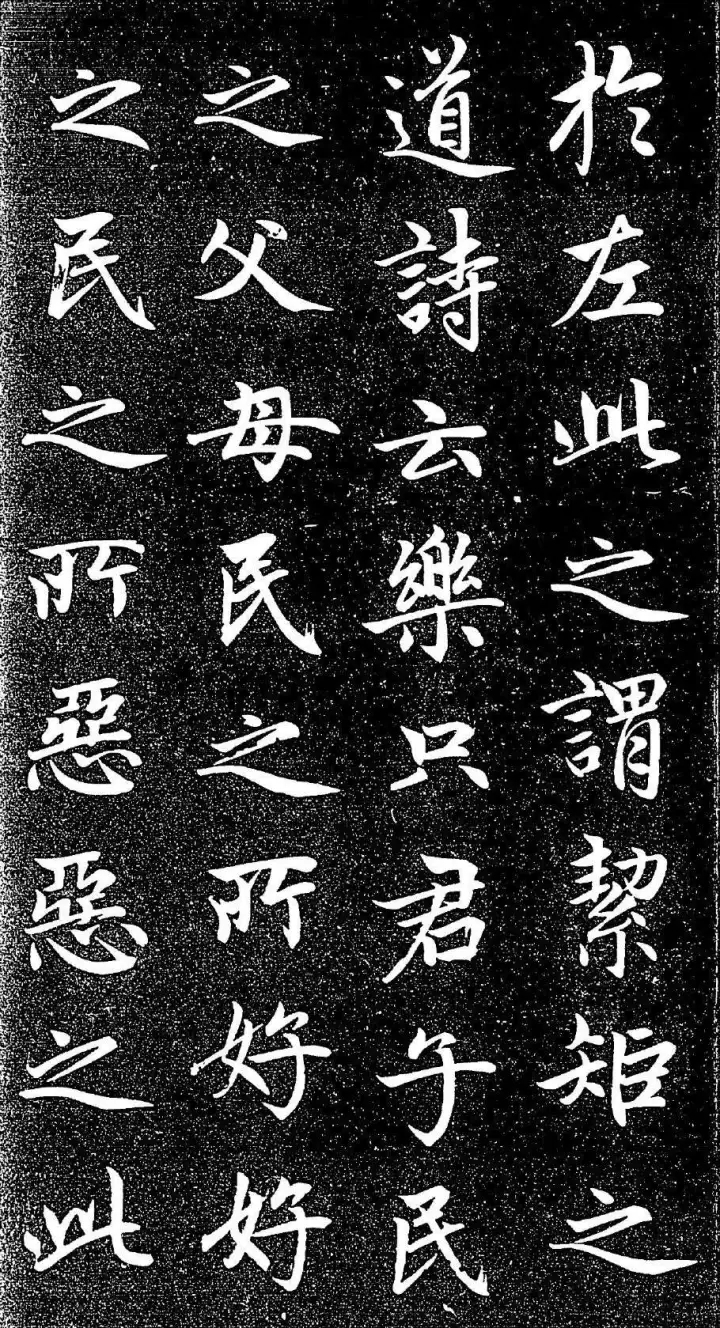 於左此之謂絜矩之
道詩云樂只君子民
之父母民之所好好
之民之所惡惡之此